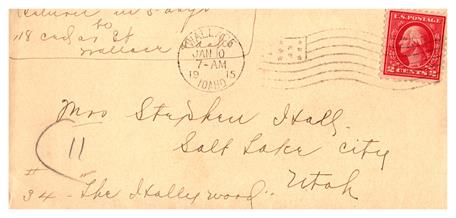 Return in 5 days
to
118 Cedar St
Wallace
WALLACE
JAN 10
7-AM
1915
IDAHO
U.S. POSTAGE
2 CENTS 2
Mrs Stephen Hall.
Salt Lake City
Utah
11
# 34 - "The Hollywood".